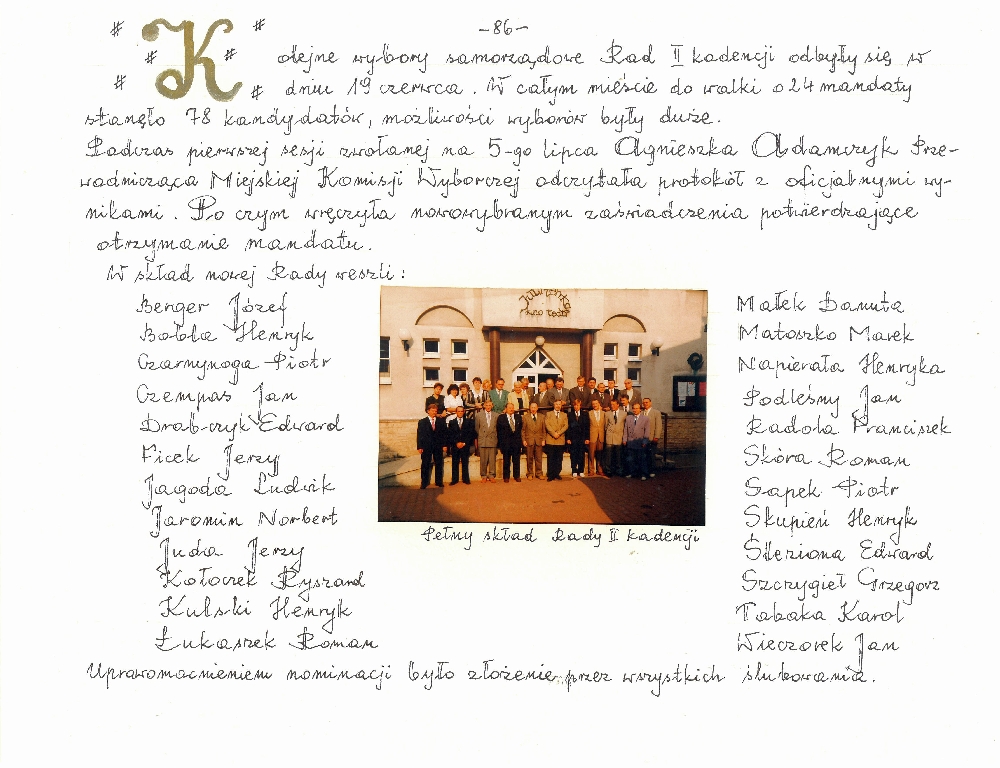 -86-
Kolejne wybory samorządowe Rad II kadencji odbyły się w
dniu 19 czerwca. W całym mieście do walki o 24 mandaty
stanęło 78 kandydatów, możliwości wyborów były duże.
Podczas pierwszej sesji zwołanej na 5-go lipca Agnieszka Adamczyk Prze-
wodnicząca Miejskiej Komisji Wyborczej odczytała protokół z oficjalnymi wy-
nikami. Po czym wręczyła nowowybranym zaświadczenia potwierdzające
otrzymanie mandatu.
W skład nowej Rady weszli:
Berger Józef
Bobla Henryk
Czarnynoga Piotr
Czempas Jan
Drabczyk Edward
Ficek Jerzy
Jagoda Ludwik
Jaromin Norbert
Juda Jerzy
Kołoczek Ryszard
Kulski Henryk
Łukaszek Roman
Pełny skład Rady II kadencji
Małek Danuta
Matoszko Marek
Napierała Henryka
Podleśny Jan
Radoła Franciszek
Skóra Roman
Sapek Piotr
Skupień Henryk
Śleziona Edward
Szczygieł Grzegorz
Tabaka Karol
Wieczorek Jan
Uprawomocnieniem nominacji było złożenie przez wszystkich ślubowania.